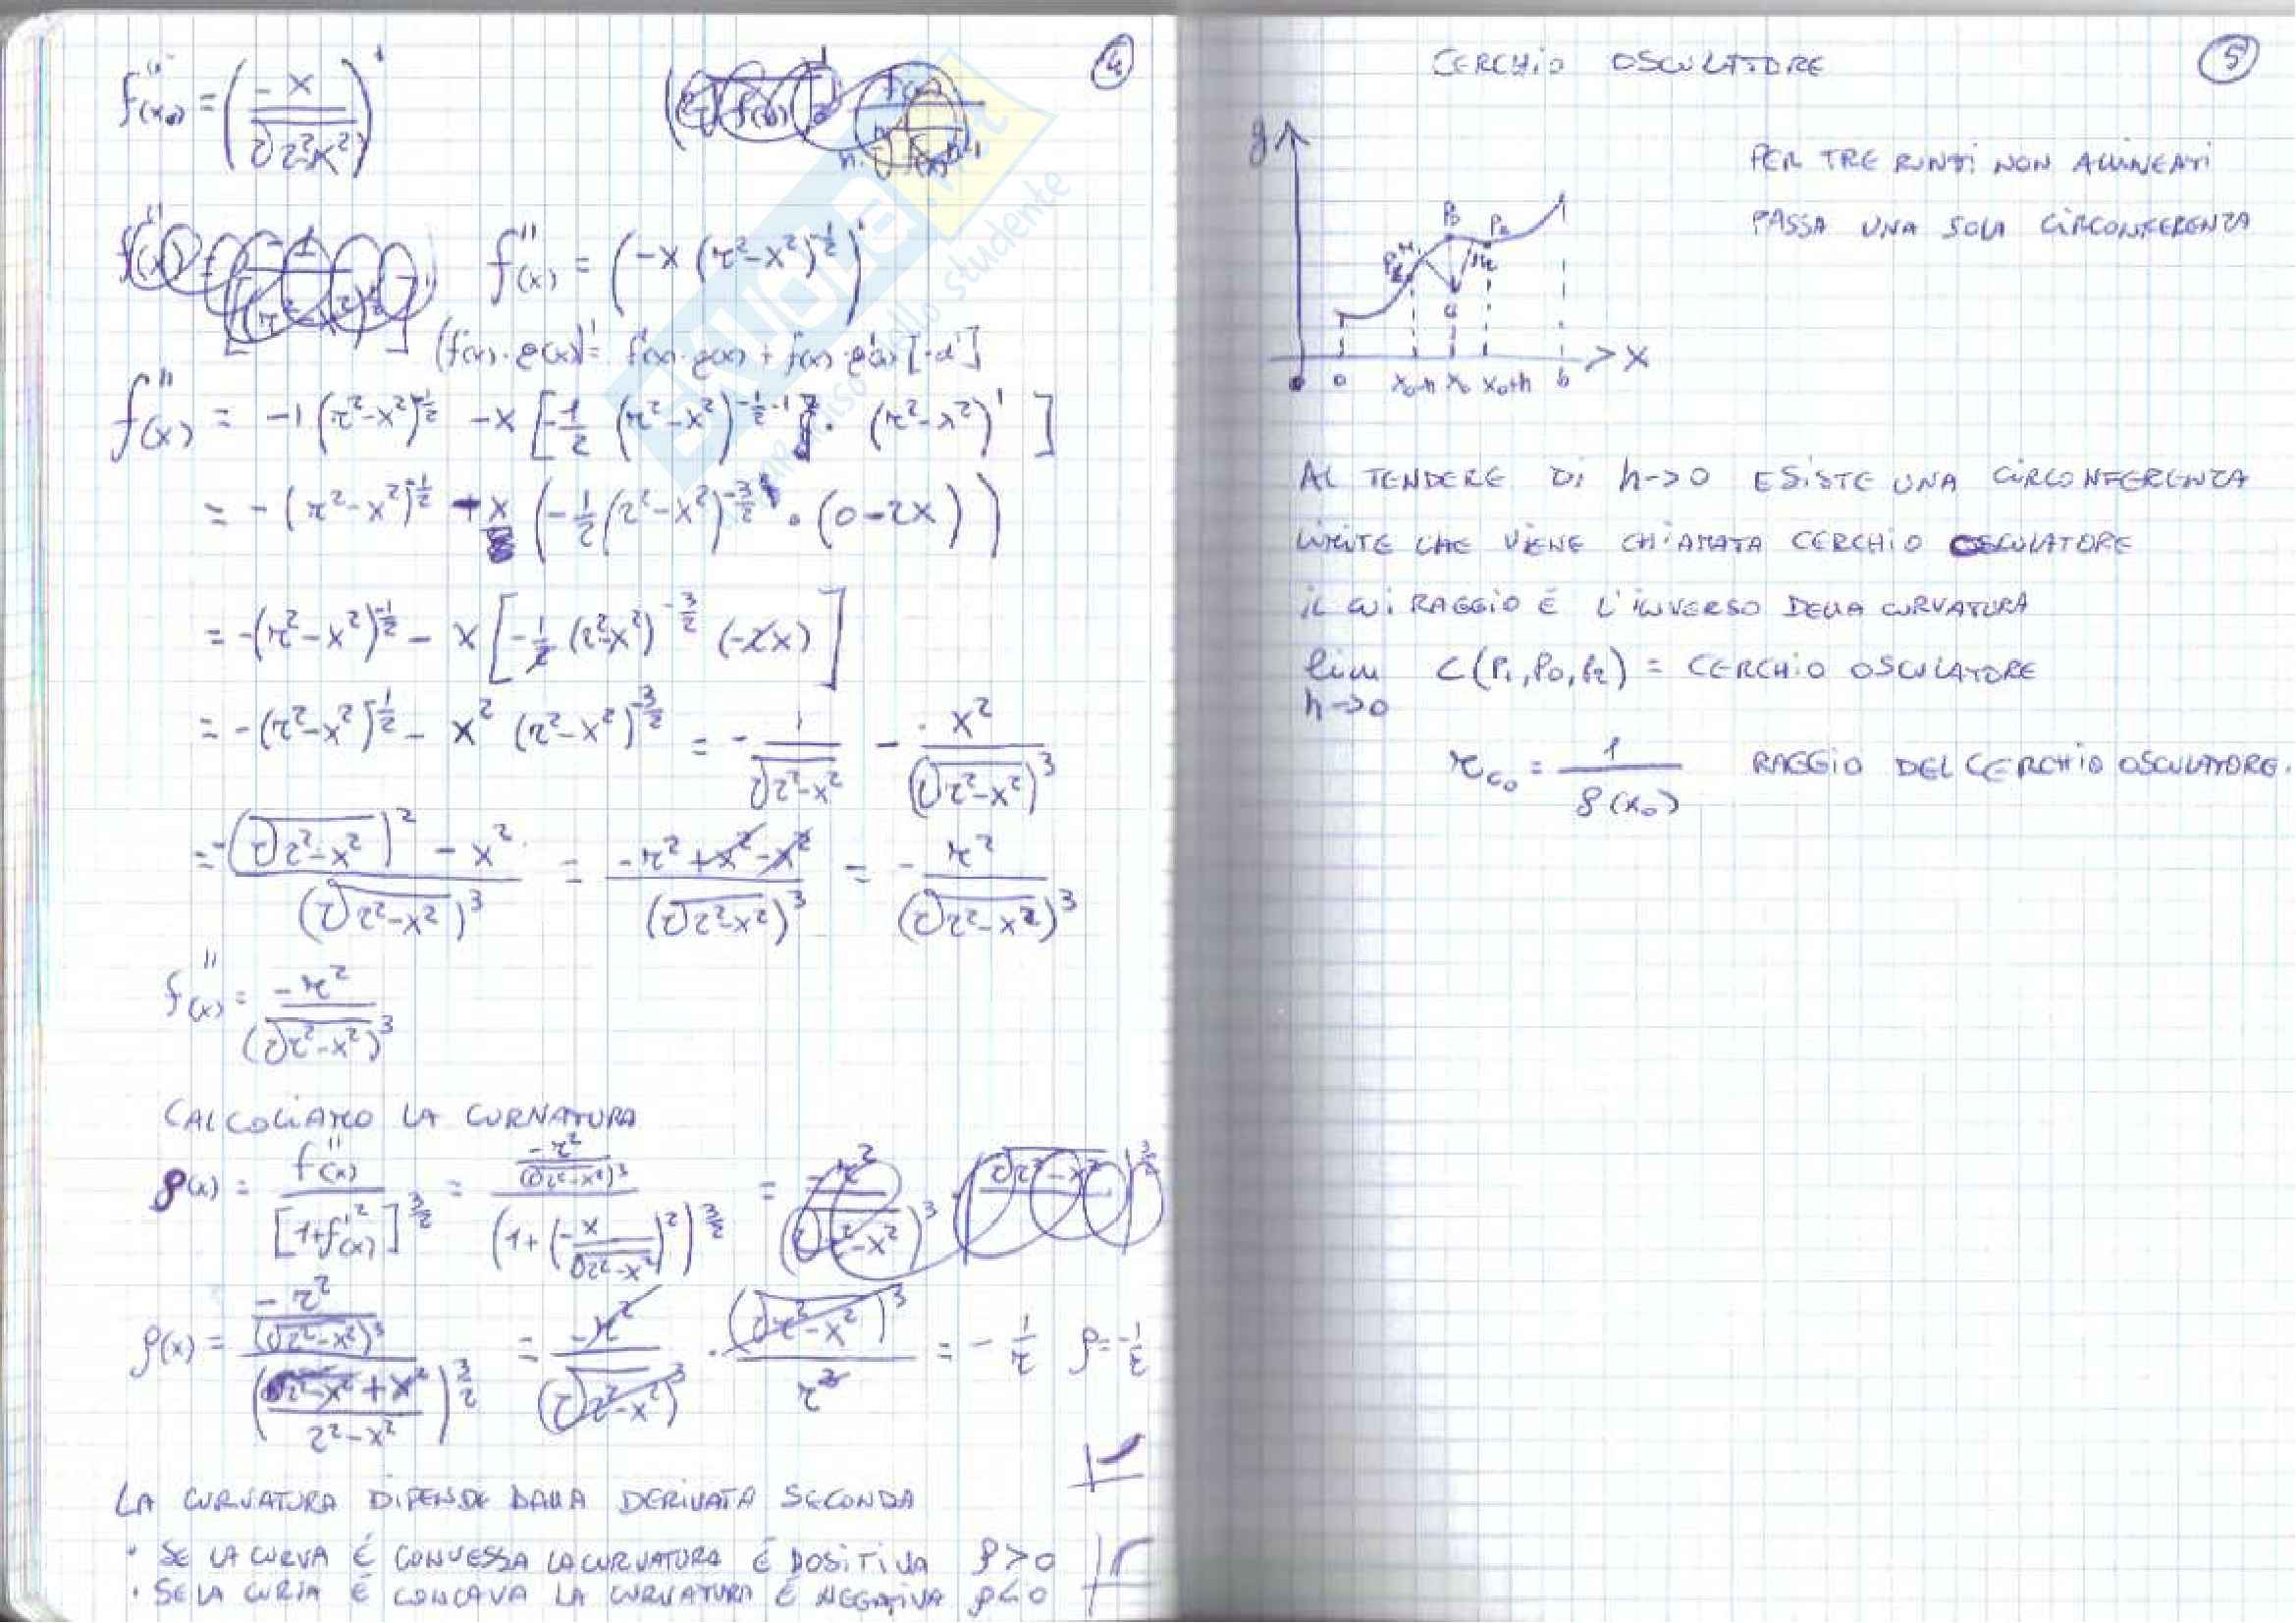 ④
f''(x₀) = (-x / √(r²-x²))'
f''(x) = (-x (r²-x²)^(-1/2))'
(f(x)·g(x))' = f'(x)·g(x) + f(x)·g'(x)
f''(x) = -1 (r²-x²)^(-1/2) -x [-1/2 (r²-x²)^(-1/2-1) · (r²-x²)' ]
= -(r²-x²)^(-1/2) - x (-1/2 (r²-x²)^(-3/2) · (0-2x))
= -(r²-x²)^(-1/2) - x [-1/2 (r²-x²)^(-3/2) (-2x)]
= -(r²-x²)^(-1/2) - x² (r²-x²)^(-3/2) = - 1/√(r²-x²) - x²/(√(r²-x²))³
= (-(√(r²-x²))² - x²)/(√(r²-x²))³ = (-r²+x²-x²)/(√(r²-x²))³ = - r²/(√(r²-x²))³
f''(x) = -r²/(√(r²-x²))³
CALCOLIAMO LA CURVATURA
ρ(x) = f''(x)/[1+f'²(x)]^(3/2) = (-r²/(√(r²-x²))³)/(1+(-x/√(r²-x²))²)^(3/2)
ρ(x) = (-r²/(√(r²-x²))³)/((r²-x²+x²)/(r²-x²))^(3/2) = -r²/(√(r²-x²))³ · (√(r²-x²))³/r³ = - 1/r ρ=-1/r
LA CURVATURA DIPENDE DALLA DERIVATA SECONDA
· SE LA CURVA É CONVESSA LA CURVATURA É POSITIVA ρ>0
· SE LA CURVA É CONCAVA LA CURVATURA É NEGATIVA ρ<0
CERCHIO OSCULATORE
⑤
y
PER TRE PUNTI NON ALLINEATI
PASSA UNA SOLA CIRCONFERENZA
P₀ P₂
P₁
x
0 x₀-h x₀ x₀+h b
AL TENDERE DI h->0 ESISTE UNA CIRCONFERENZA
LIMITE CHE VIENE CHIAMATA CERCHIO OSCULATORE
IL CUI RAGGIO É L'INVERSO DELLA CURVATURA
lim C(P₁,P₀,P₂) = CERCHIO OSCULATORE
h->0
r_C₀ = 1/ρ(x₀) RAGGIO DEL CERCHIO OSCULATORE.